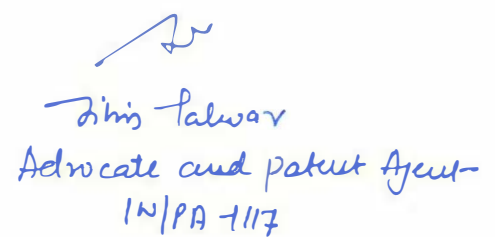 Talwar
Advocate and patent Agent
IN/PA-1117